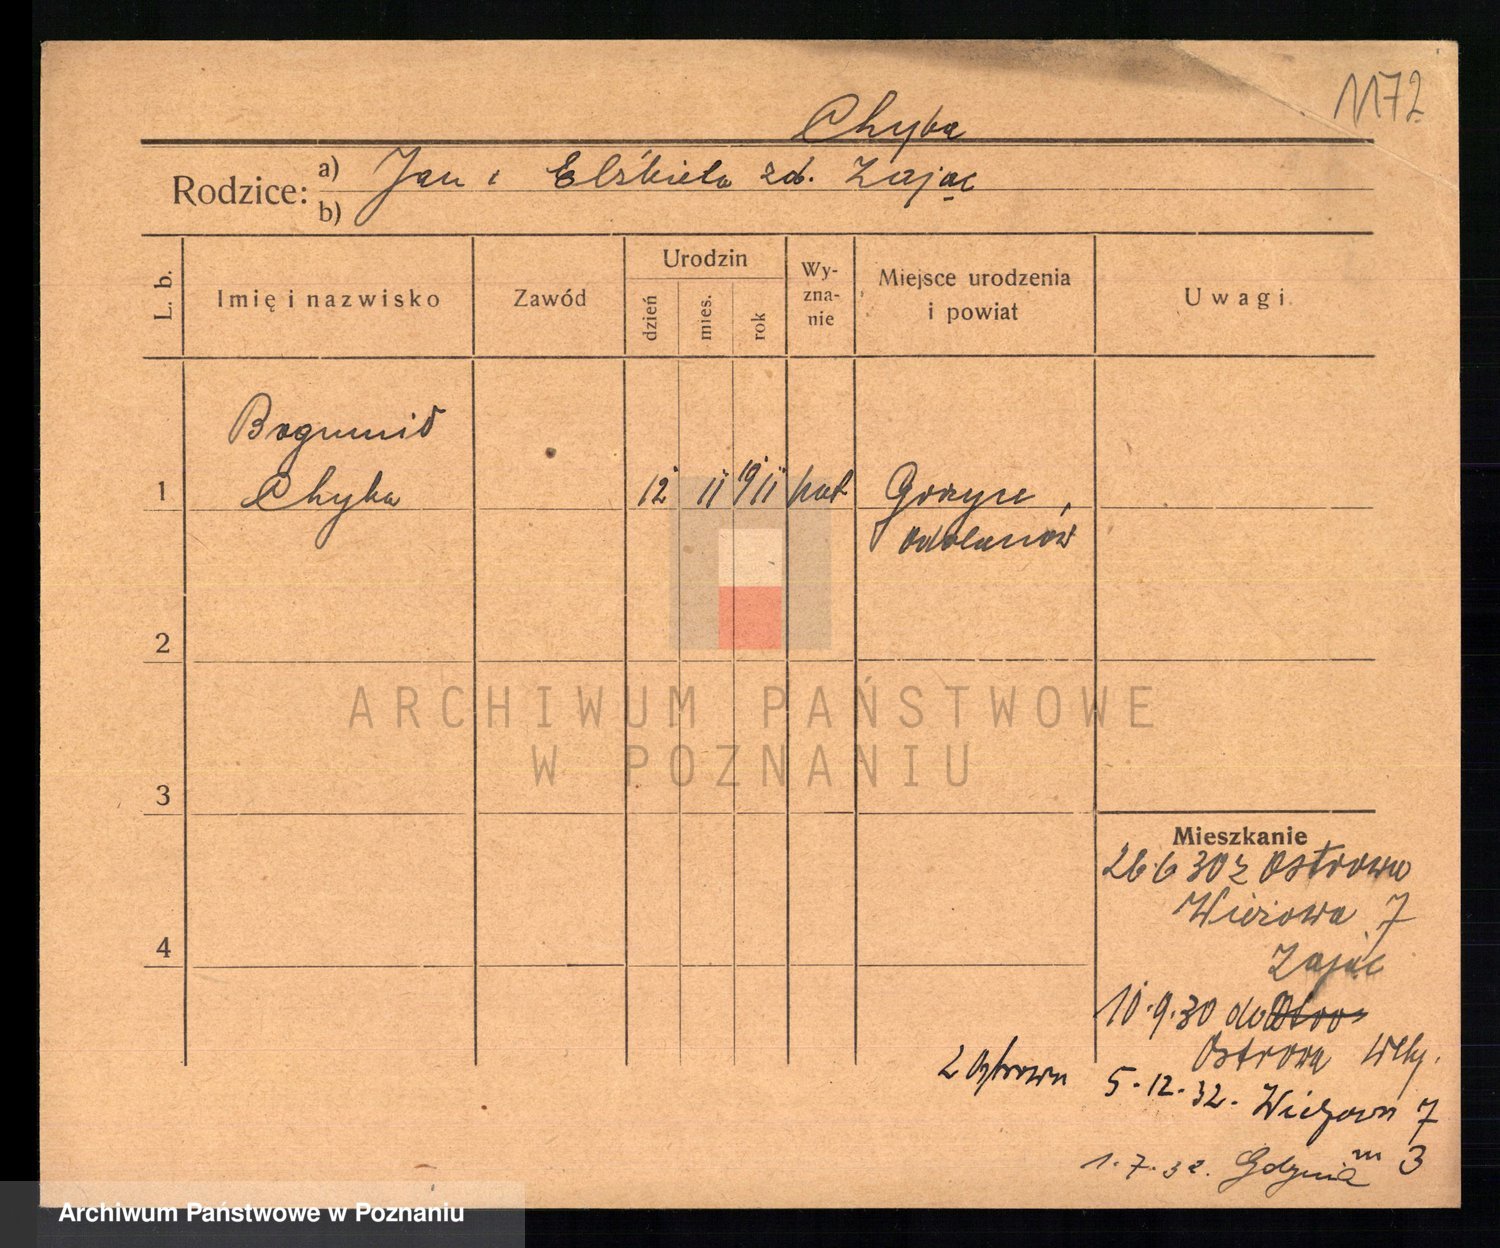 1172
Chyba
Rodzice: a) Jan i Elżbieta zd. Zając
b)
L. b. Imię i nazwisko Zawód Urodzin dzień mies. rok Wyznanie Miejsce urodzenia i powiat Uwagi
Bogumił
1 Chyba 12 11 1911 kat Gorzyce,
Odolanów
2
ARCHIWUM PAŃSTWOWE
W POZNANIU
3
Mieszkanie
26.6 30 z Ostrowa
Wieżowa 7
Zając
4
10.9.30 do
Ostrowa Wlkp.
z Ostrowa 5.12.32. Wieżowa 7
m 3
1.7.32. Gdynia
Archiwum Państwowe w Poznaniu